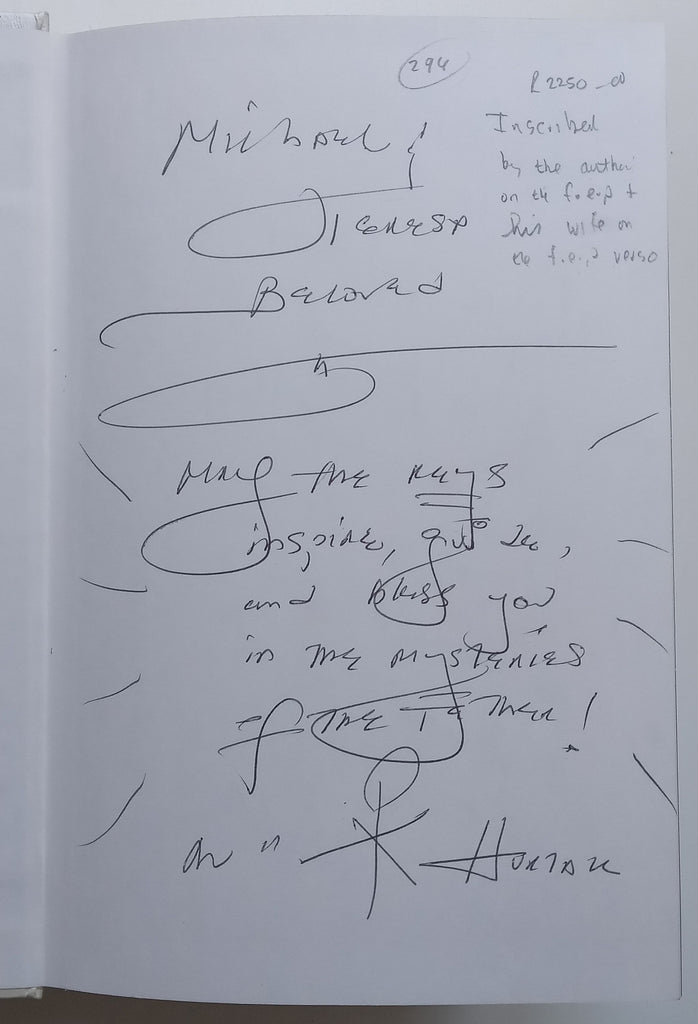 294
R2250_00
Inscribed
by the author
on the f.e.p +
his wife on
the f.e.p verso
Michael!
Teresa
Beloved
May the Keys
inspire, guide,
and bless you
in the mysteries
of the Father!
Hurtak